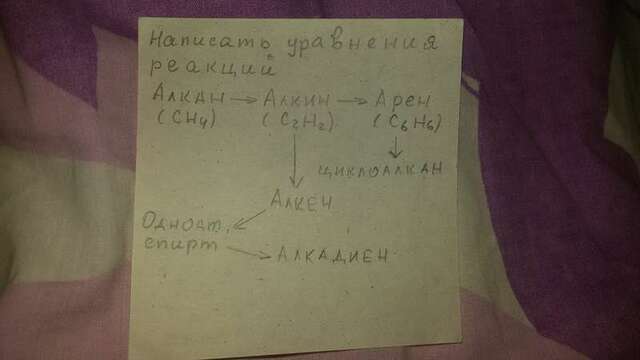 Написать уравнения
реакций
Алкан → Алкин → Арен
(CH4) (C2H2) (C6H6)
↓ ↓
циклоалкан
Алкен
↙
Одноат.
спирт → Алкадиен